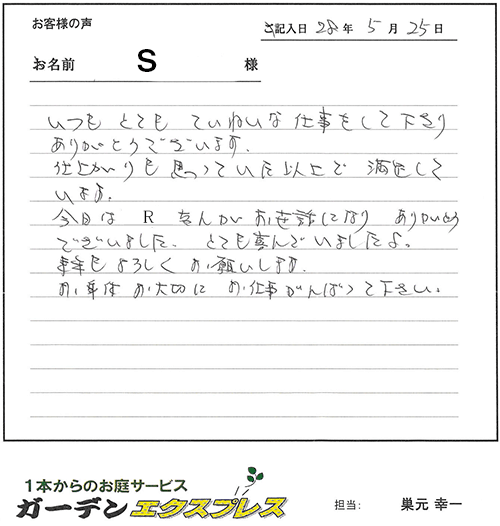 お客様の声
ご記入日 28 年 5 月 25 日
お名前 S 様
いつも とても ていねいな 仕事をして下さり
ありがとうございます。
仕上がりも 思っていた以上で 満足して
います。
今日は R さんがお世話になり ありがとう
ございました。とても喜んでいましたよ。
来年もよろしくお願いします。
お身体 お大切に お仕事がんばって下さい。
1本からのお庭サービス
ガーデンエクスプレス
担当: 巣元 幸一